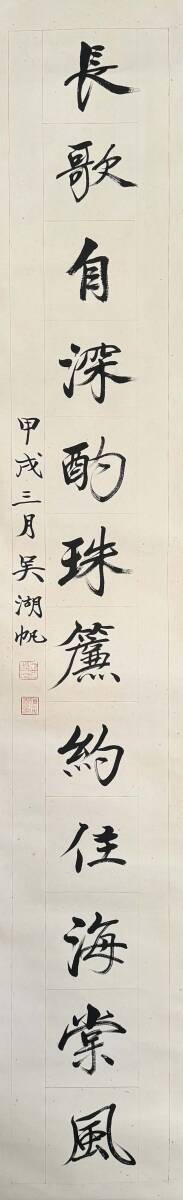 長歌自深酌珠簾約住海棠風
甲戌三月吳湖帆